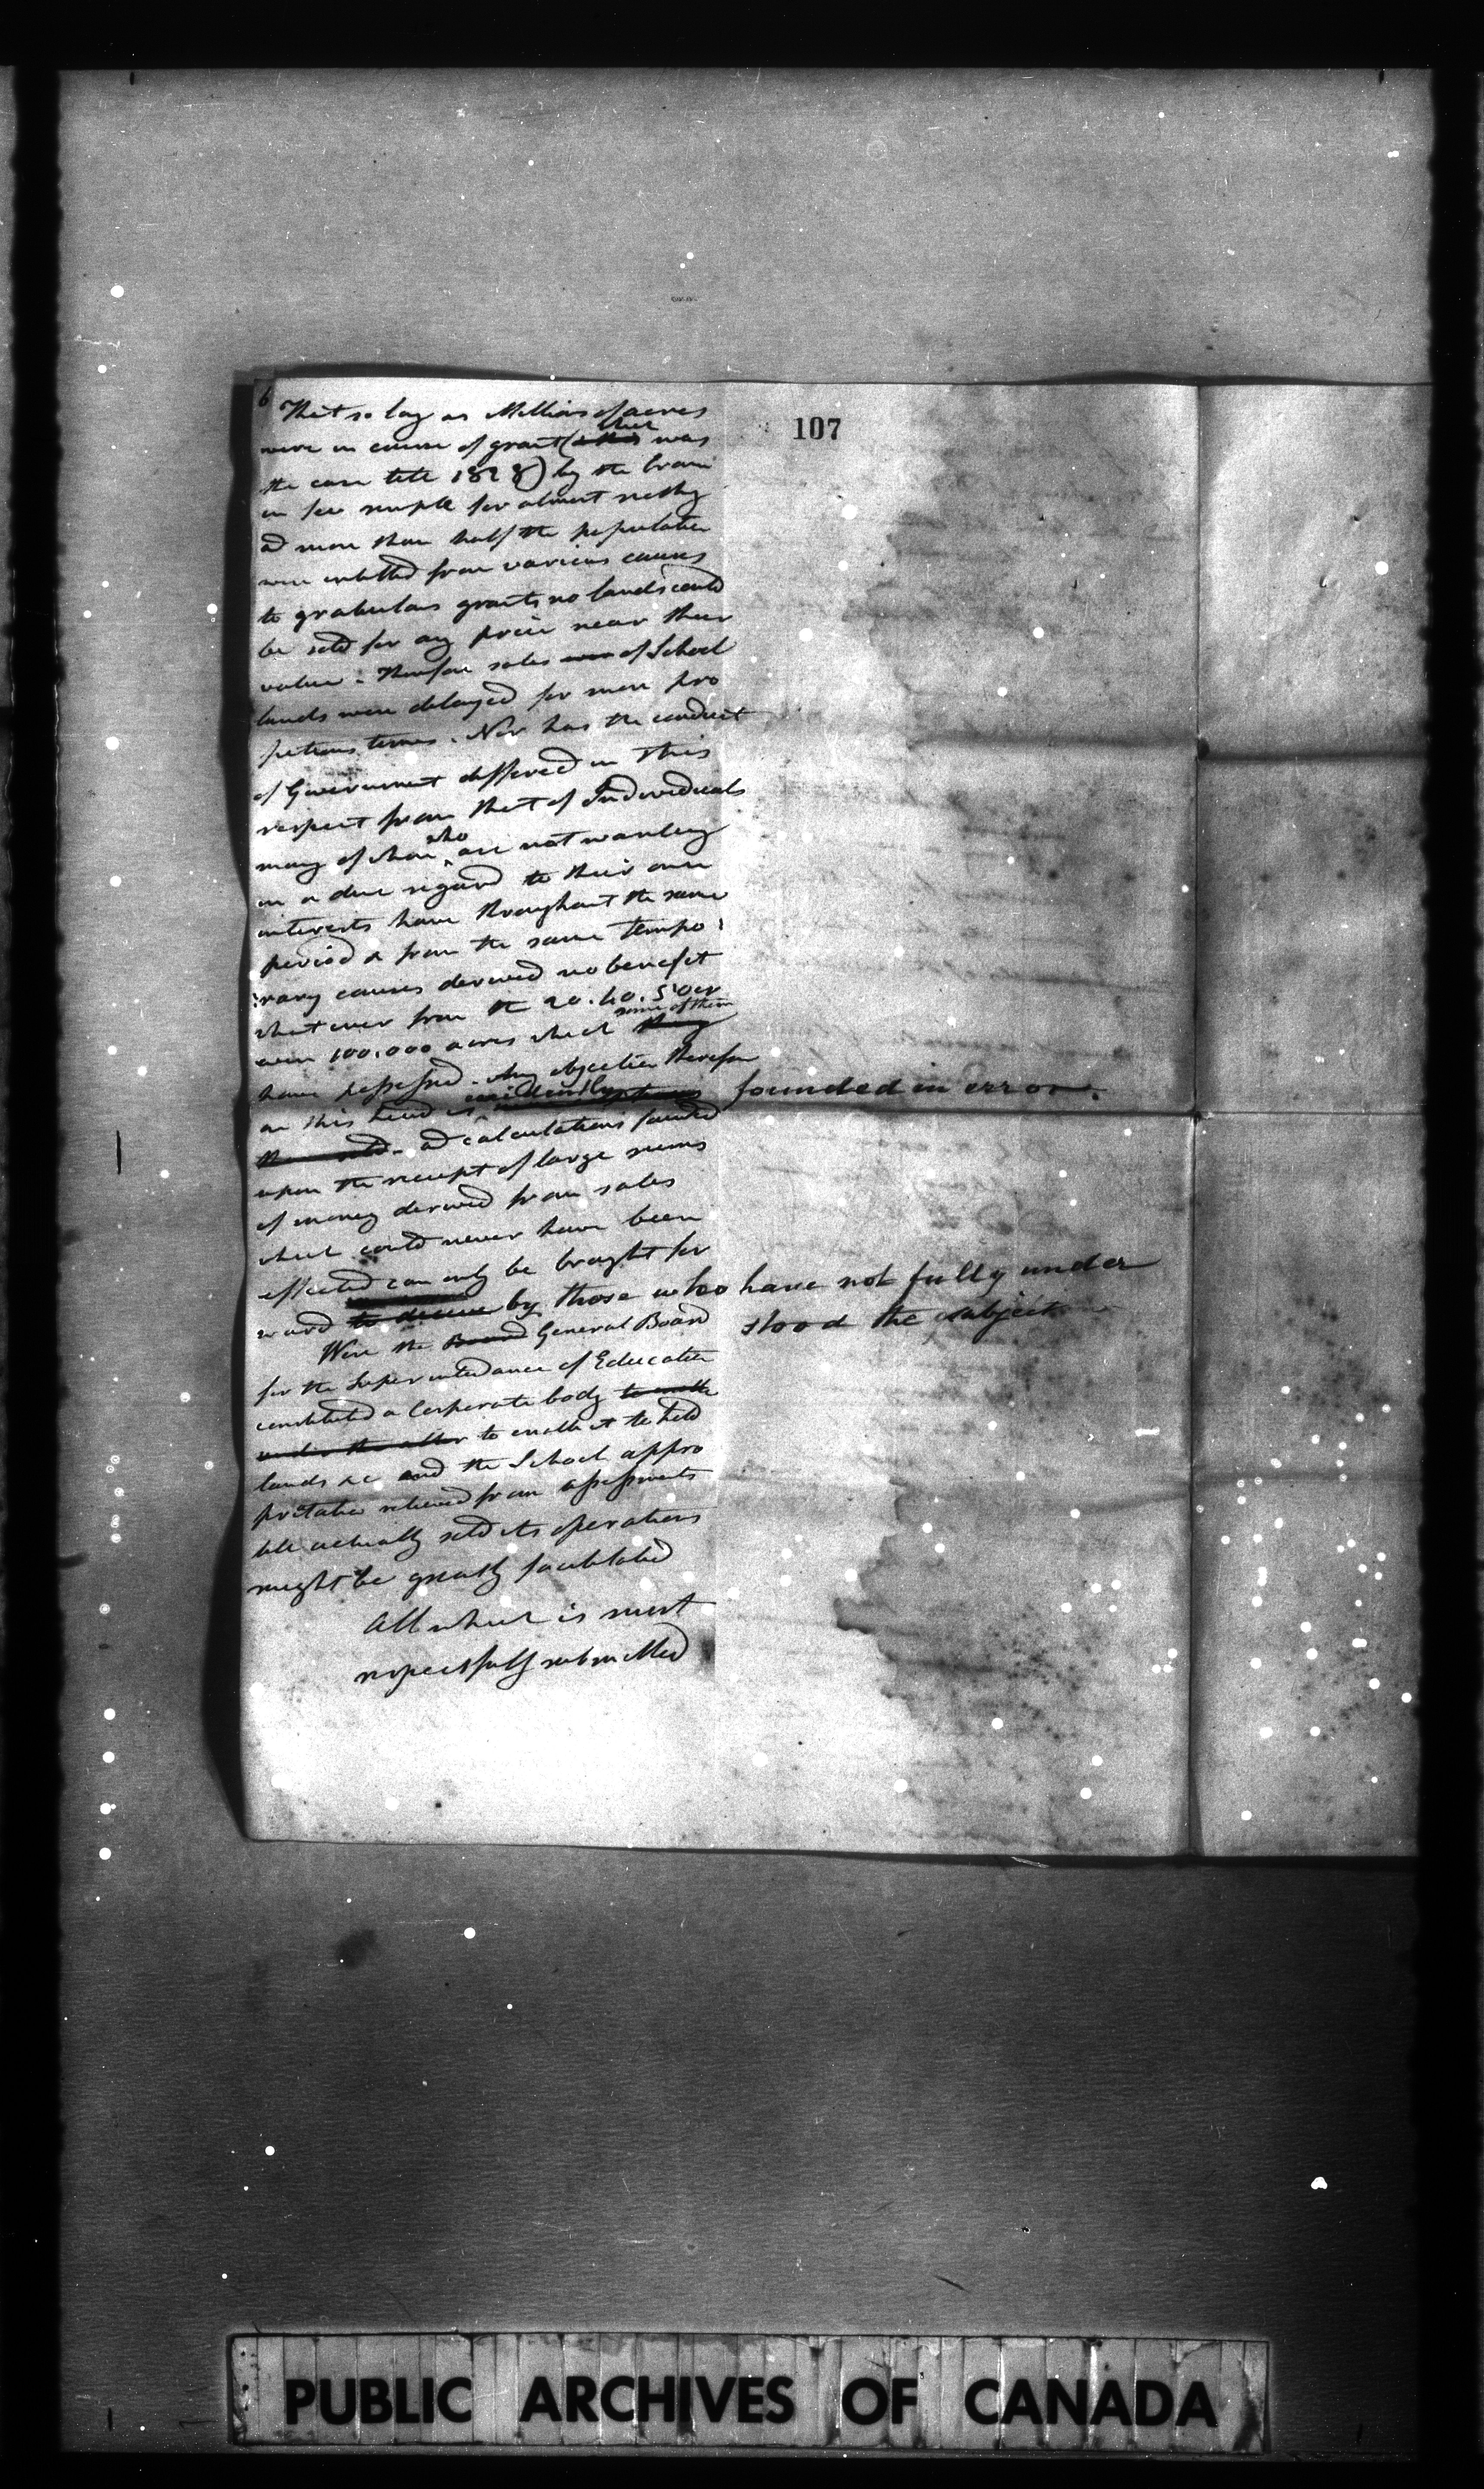 6
107
That so long as Millions of acres
were in course of grant (which was
the case till 1828) by the Crown
in fee simple for almost nothing
ad more than half the population
were entitled from various causes
to gratuitous grants no lands could
be sold for any price near their
value. Therefore sales of School
lands were delayed for more pro
pitious times. Nor has the conduct
of Government differed in this
respect from that of Individuals
many of whom who are not wanting
in a due regard to their own
interests have throughout the same
period & from the same tempo:
:rary causes derived no benefit
whatever from the 20. 40. 50 or
even 100.000 acres which they some of them
have possessed. Any objection therefore
on this head is evidently founded in error.
ad calculations founded
upon the receipt of large sums
of money derived from sales
which could never have been
effected can only be brought for
ward to deceive by those who have not fully under
stood the subject
Were the Board General Board
for the Superintendance of Education
constituted a Corporate body to enable
under the to enable it to hold
lands &c and the School appro
priation relieved from assessments
till actually sold its operations
might be greatly facilitated
All which is most
respectfully submitted
PUBLIC ARCHIVES OF CANADA